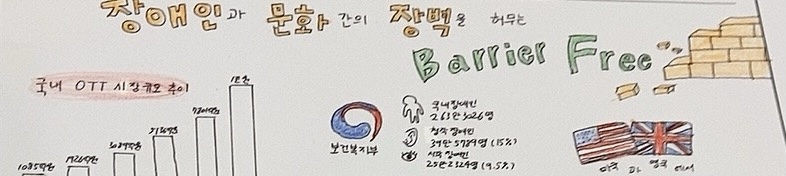 장애인과 문화 간의 장벽을 허무는
Barrier Free
국내 OTT 시장규모 추이
1085억원
1926억원
3089억원
5136억원
7801억원
1조원
보건복지부
국내장애인
263만 3026명
청각 장애인
39만 5789명 (15%)
시각 장애인
25만 2324명 (9.5%)
미국 과 영국 에서